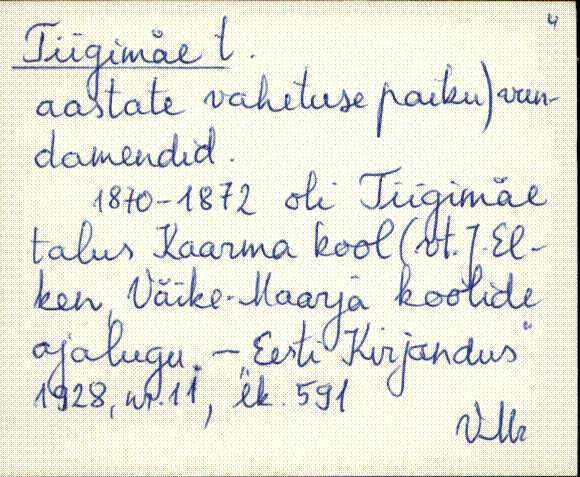 4
Tiigimäe t.
aastate vahetuse paiku) vun-
damendid.
1870-1872 oli Tiigimäe
talus Kaarma kool (vt. J. El-
ken, Väike-Maarja koolide
ajalugu. - "Eesti Kirjandus"
1928, nr. 11, lk. 591